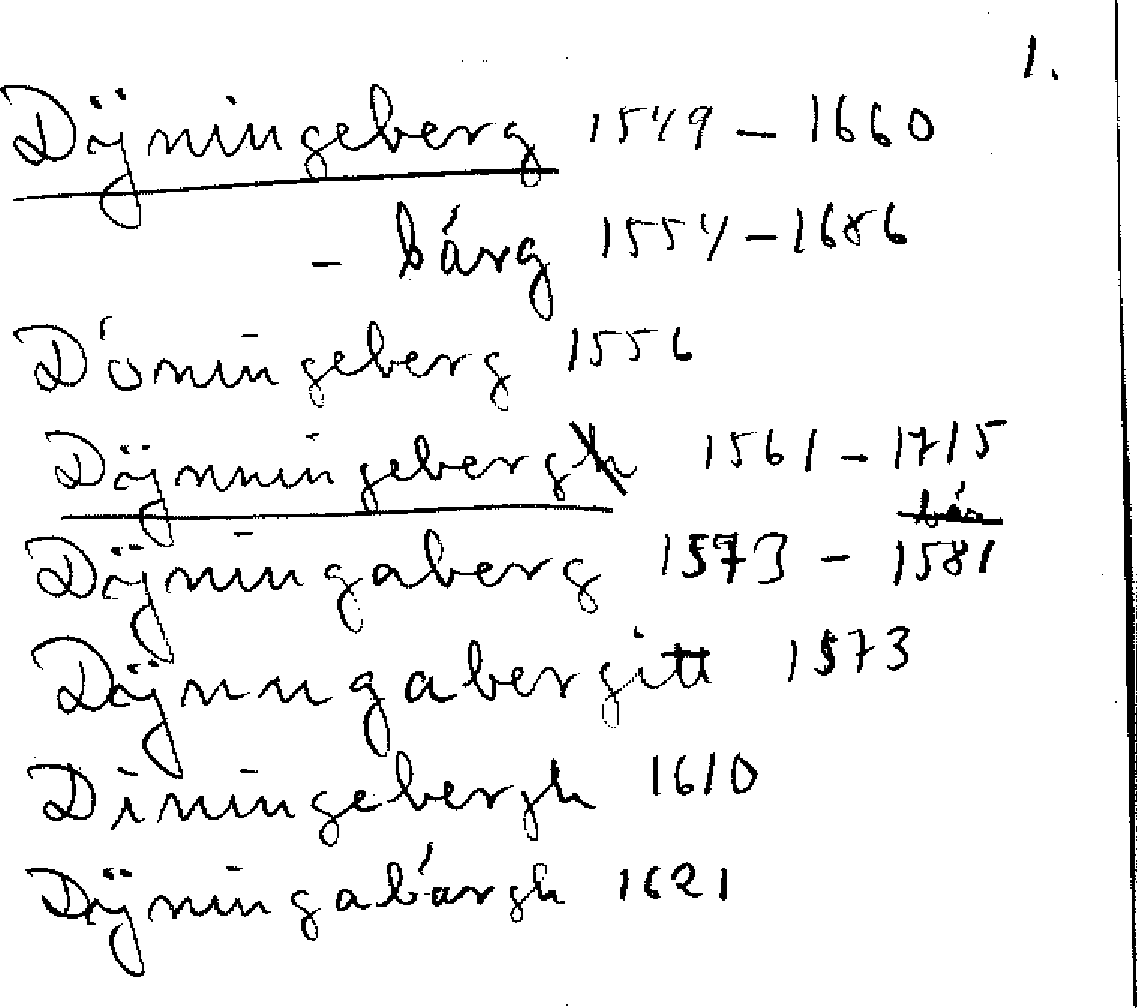 1.
Dÿningeberg 1549 – 1660
- bárg 1554 – 1686
Dóningeberg 1556
Dÿnningeberg 1561 – 1715
Dÿningaberg 1573 – 1581
Dÿnngabergitt 1573
Diningebergh 1610
Dÿningabárgh 1621